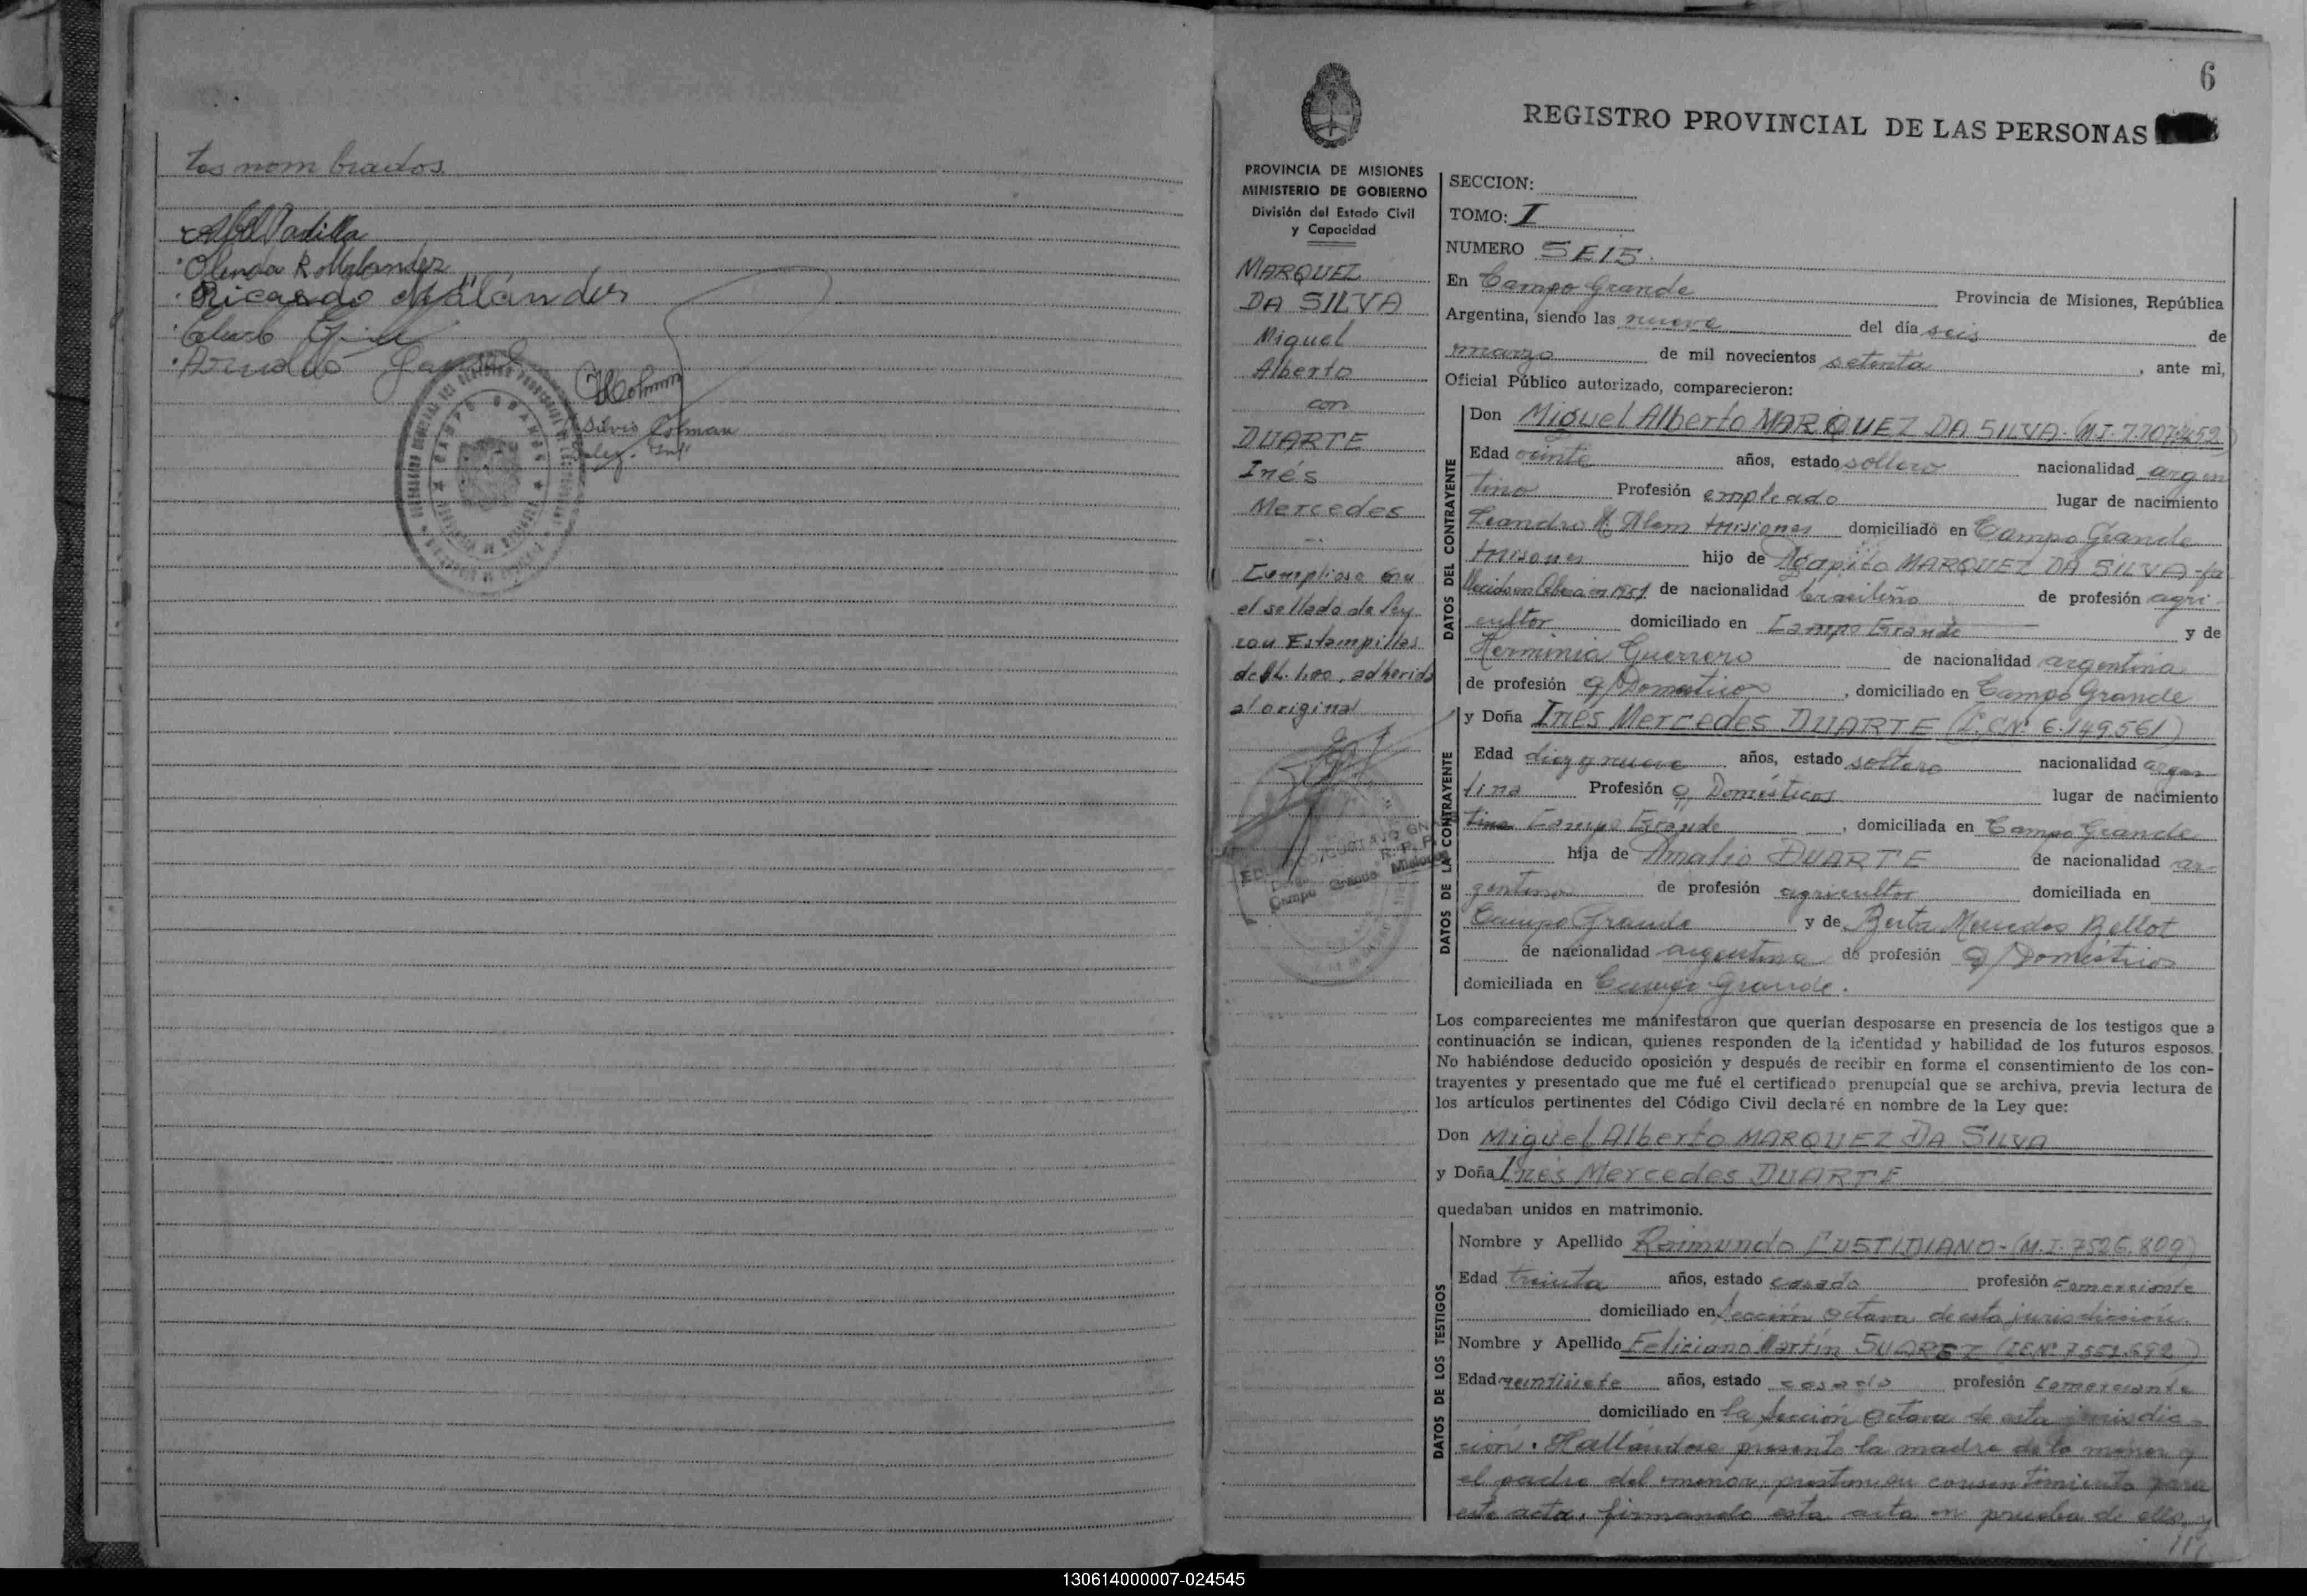 los nombrados
Abel Padilla
Ricardo
CAMPO GRANDE
Silvio Colman
6
REGISTRO PROVINCIAL DE LAS PERSONAS
PROVINCIA DE MISIONES
MINISTERIO DE GOBIERNO
División del Estado Civil
y Capacidad
MARQUEZ
DA SILVA
Miguel
Alberto
con
DUARTE
Inés
Mercedes
Cumpliose con
el sellado de ley
con Estampillas
de 1.00, adherida
al original
Campo Grande Misiones
SECCION:
TOMO: I
NUMERO SEIS.
En Campo Grande Provincia de Misiones, República
Argentina, siendo las nueve del día seis de
marzo de mil novecientos setenta, ante mi,
Oficial Público autorizado, comparecieron:
DATOS DEL CONTRAYENTE
Don Miguel Alberto MARQUEZ DA SILVA - (M.I.
Edad veinte años, estado soltero nacionalidad argen
tino Profesión empleado lugar de nacimiento
Leandro N. Alem Misiones domiciliado en Campo Grande
Misiones hijo de Agapito MARQUEZ DA SILVA - fa
llecido en de nacionalidad brasileño de profesión agri
cultor domiciliado en Campo Grande y de
Herminia Guerrero de nacionalidad argentina
de profesión q/Domesticos, domiciliado en Campo Grande
DATOS DE LA CONTRAYENTE
y Doña Inés Mercedes DUARTE (L.C.Nº 6.149.561)
Edad diez y nueve años, estado soltera nacionalidad argen
tina Profesión q/Domésticos lugar de nacimiento
tina Campo Grande, domiciliada en Campo Grande
hija de Amalio DUARTE de nacionalidad ar-
gentino de profesión agricultor domiciliada en
Campo Grande y de Berta Mercedes Bellot
de nacionalidad argentina de profesión q/Domésticos
domiciliada en Campo Grande.
Los comparecientes me manifestaron que querían desposarse en presencia de los testigos que a
continuación se indican, quienes responden de la identidad y habilidad de los futuros esposos.
No habiéndose deducido oposición y después de recibir en forma el consentimiento de los con-
trayentes y presentado que me fué el certificado prenupcial que se archiva, previa lectura de
los artículos pertinentes del Código Civil declaré en nombre de la Ley que:
Don Miguel Alberto MARQUEZ DA SILVA
y Doña Inés Mercedes DUARTE
quedaban unidos en matrimonio.
DATOS DE LOS TESTIGOS
Nombre y Apellido Raimundo (M.I. 7526.809)
Edad treinta años, estado casado profesión comerciante
domiciliado en Sección Octava de esta jurisdicción.
Nombre y Apellido Feliciano Martín SUAREZ
Edad veintisiete años, estado casado profesión comerciante
domiciliado en la Sección Octava de esta jurisdic-
ción. Hallándose presente la madre de la menor y
el padre del menor, prestan su consentimiento para
este acto, firmando esta acta en prueba de ello, y
130614000007-024545